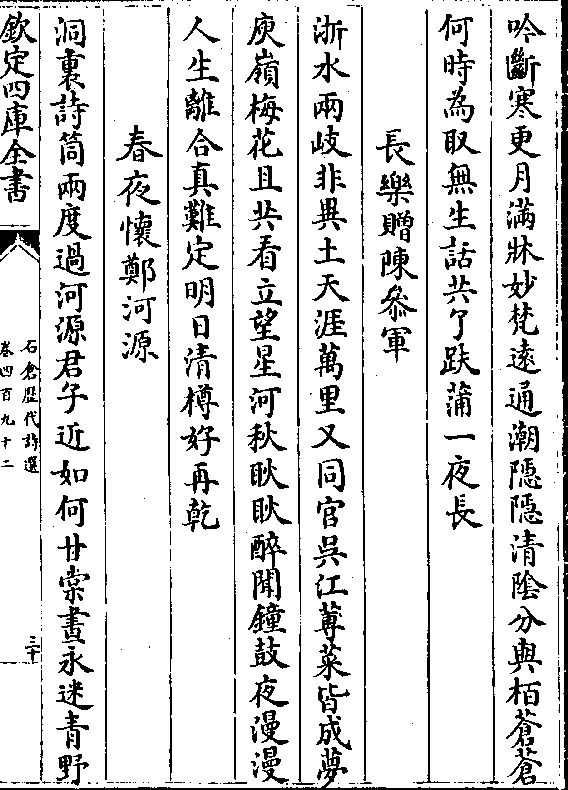 吟斷寒更月滿牀妙梵遠通潮隠隠清陰分與栢蒼蒼
何時為取無生話共了趺蒲一夜長
長樂贈陳叅軍
浙水兩岐非異土天涯萬里又同官吳江蓴菜皆成夢
庾嶺梅花且共看立望星河秋耿耿醉聞鐘鼓夜漫漫
人生離合真難定明日清樽好再乾
春夜懷鄭河源
洞裏詩筒兩度過河源君子近如何甘棠晝永迷青野
欽定四庫全書
石倉歴代詩選
卷四百九十二
三十